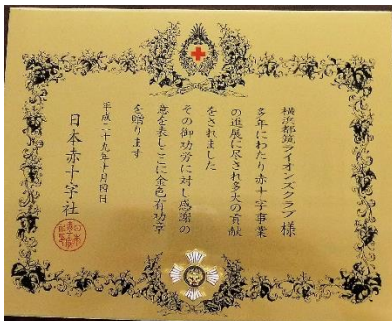 横浜都筑ライオンズクラブ 様
多年にわたり赤十字事業
の進展に尽され多大の貢献
をされました
その御功労に対し感謝の
意を表しここに金色有功章
を贈ります
平成二十九年十月四日
日本赤十字社